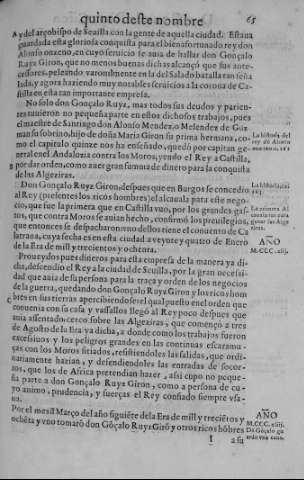 quinto deste nombre 65
A y del arçobispo de Seuilla con la gente de aquella ciudad. Estaua
guardada esta gloriosa conquista para el bienafortunado rey don
Alfonso onzeno, en cuyo seruicio se auia de hallar don Gonçalo
Ruyz Giron, que no menos buenas dichas alcançò que sus ante-
cessores, peleando varonilmente en la del Salado batalla tan seña
lada, y agora haziendo muy notables seruicios a la corona de Ca-
stilla en esta tan importante empresa.
No solo don Gonçalo Ruyz, mas todos sus deudos y parien-
tes tuuieron no pequeña parte en estos dichosos trabajos, pues
el maestre de Santiago don Alonso Mendez, o Melendez de Guz
man su sobrino, hijo de doña Maria Giron su prima hermana, co-
mo el capitulo quinze nos ha enseñado, quedó por capitan ge-
neral en el Andaluzia contra los Moros, yendo el Rey a Castilla,
B por dar orden, como auer gran summa de dinero para la conquista
de las Algeziras.
La historia del
rey dõ Alonso
Don Gonçalo Ruyz Giron, despues que en Burgos se concedio
al Rey (presentes los ricos hombres) el alcauala para este nego-
cio, que fue la primera que en Castilla vuo, por los grandes gas-
tos, que contra Moros se auian hecho, confirmó los preuilegios,
que entonces se despacharon: uno dellos tiene el conuento de Ca
latraua, cuya fecha es en esta ciudad a veynte y quatro de Enero
de la Era de mill y trezientos y ochenta.
La historia,
AÑO
M.CCC.xlij.
Proueydos pues dineros para esta empresa de la manera ya di-
cha, descendio el Rey a la ciudad de Seuilla, por la gran necessi-
dad que auia de su persona para la traça y orden de los negocios
de la guerra, quedando don Gonçalo Ruyz Giron y los ricos hom
C bres en sus tierras apercibiendose: el qual puesto en el orden que
conuenia con su casa y vassallos llegó al Rey poco despues que
auia assentado cerco sobre las Algeziras, que començò a tres
de Agosto de la Era ya dicha, a donde como los trabajos fueron
excessiuos y los peligros grandes en las continuas escaramu-
ças con los Moros sitiados, resistiendoles las salidas, que ordi-
nariamente hazian, y defendiendoles las entradas de socor-
ros, que los de Africa pretendian hazer, assi cupo no peque-
ña parte a don Gonçalo Ruyz Giron, como a persona de cu-
yo animo, prudencia, y fuerças el Rey confiado siempre vsa-
ua.
Por el mes d Março del año siguiẽte dela Era de mill y trecietos y
ochẽta y uno tomarõ dõ Gõçalo Ruyz Girõ y otros ricos hõbres
AÑO
M.CCC.xliij.
Dõ Gõçalo gu
I a su